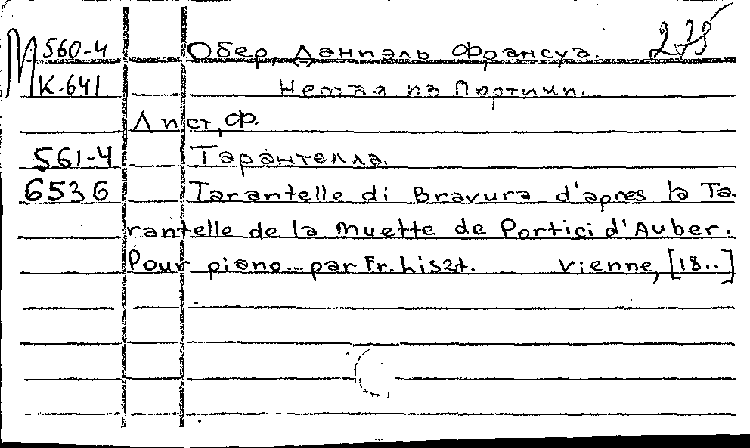 М 560-4 Обер, Даниэль Франсуа. 275
К-641 Немая из Портичи.
Лист, Ф.
561-4 Тарантелла.
6536 Tarantelle di Bravura d'apres la Ta-
rantelle de la Muette de Portici d'Auber.
Pour piano... par Fr. Liszt. Vienne, [18..]